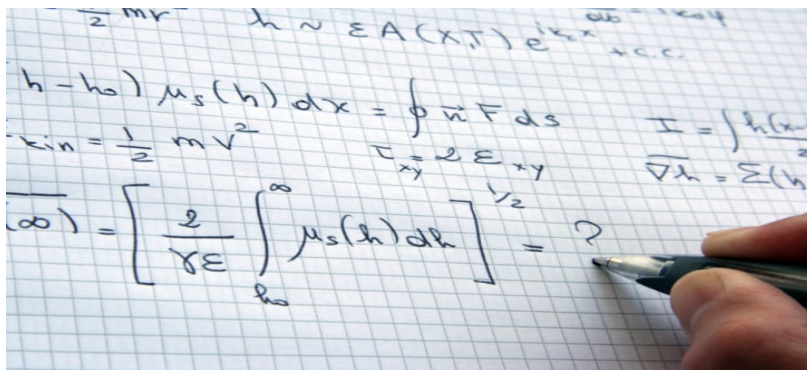 ½ mr
h ~ εA(X,T) e^{ik_c x} + c.c.
h-h₀) μₛ(h) dx = ∮ n⃗ F ds
I = ∫ h(x
kin = ½ mv²
τ_xy = 2 ε_xy
∇h = Σ(h
(∞) = [2/γε ∫_{h₀}^{∞} μₛ(h) dh]^{1/2} = ?